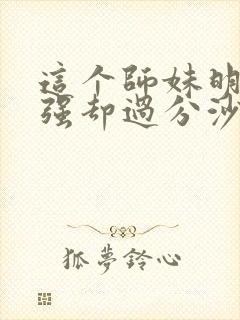 這个師妹明
强却過分沙
狐夢鈴心